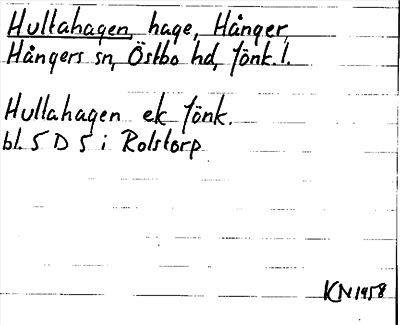 Hultahagen, hage, Hånger,
Hångers sn, Östbo hd, Jönk. l.
Hultahagen ek Jönk.
bl. 5 D 5 i Rolstorp
KN 1958